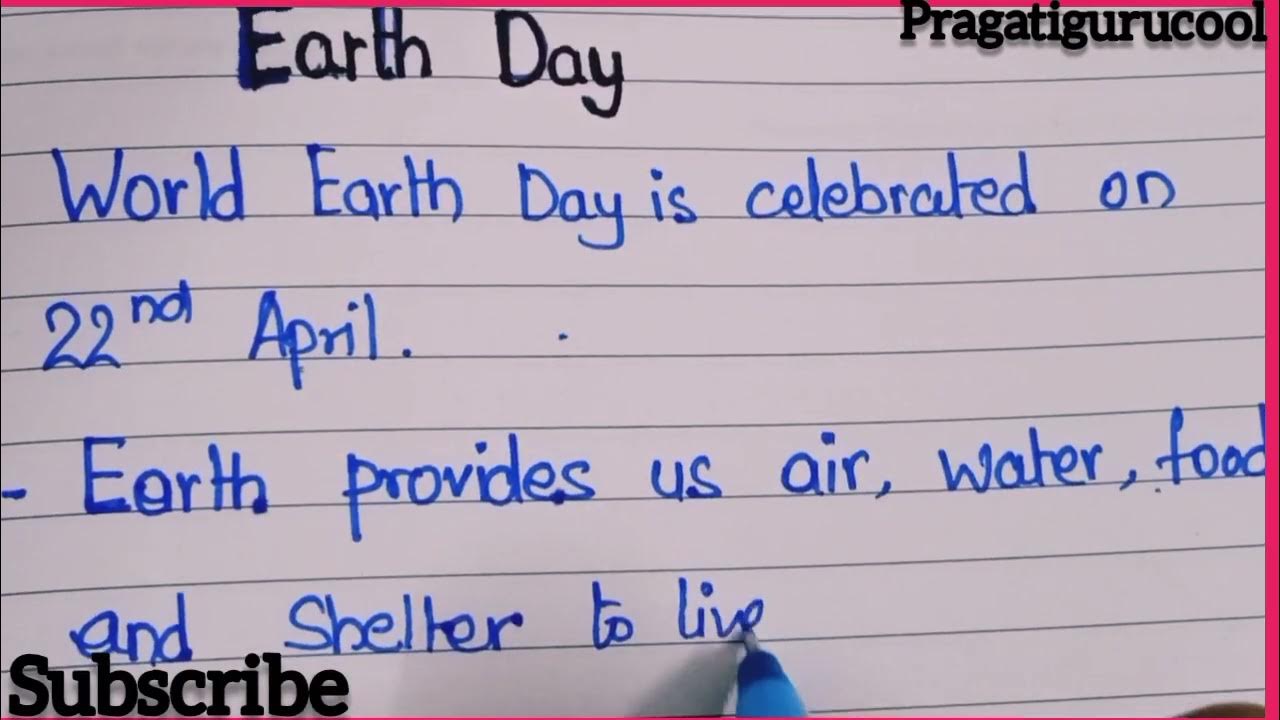 Pragatigurucool
Earth Day
World Earth Day is celebrated on
22nd April.
- Earth provides us air, water, food
and Shelter to live
Subscribe